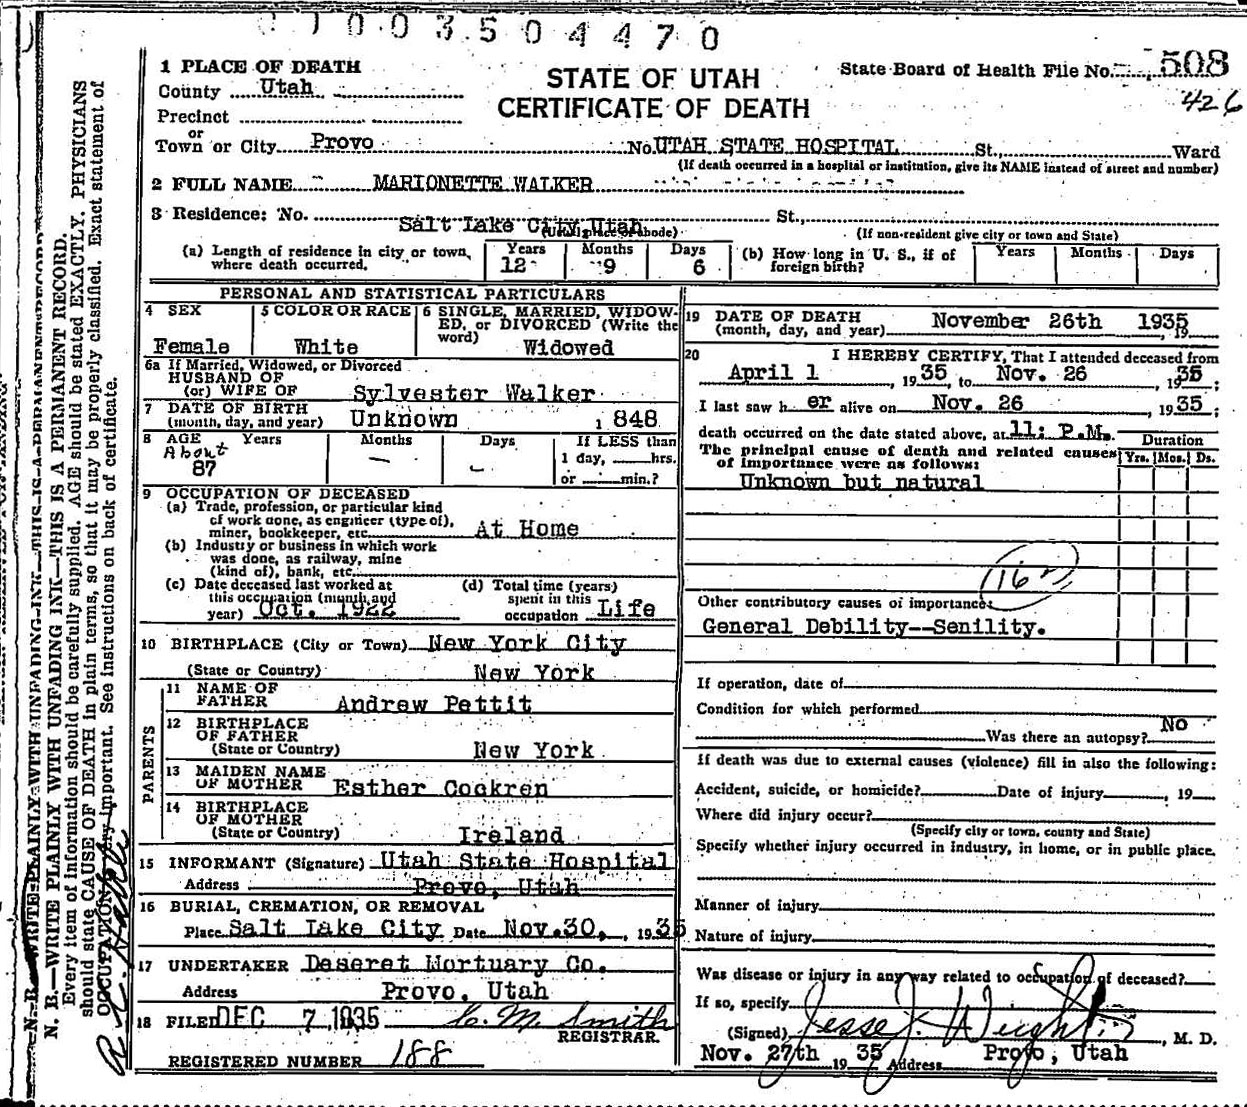 1003504470
1 PLACE OF DEATH
STATE OF UTAH
CERTIFICATE OF DEATH
State Board of Health File No. 508
426
County Utah
Precinct
or
Town or City Provo No. UTAH STATE HOSPITAL St., Ward
(If death occurred in a hospital or institution, give its NAME instead of street and number)
2 FULL NAME MARIONETTE WALKER
3 Residence: No. Salt Lake City, Utah St.,
(Usual place of abode) (If non-resident give city or town and State)
(a) Length of residence in city or town, where death occurred. Years 12 Months 9 Days 6
(b) How long in U. S., if of foreign birth? Years Months Days
PERSONAL AND STATISTICAL PARTICULARS
4 SEX Female
5 COLOR OR RACE White
6 SINGLE, MARRIED, WIDOWED, or DIVORCED (Write the word) Widowed
6a If Married, Widowed, or Divorced
HUSBAND OF
(or) WIFE OF Sylvester Walker
7 DATE OF BIRTH
(month, day, and year) Unknown 1848
8 AGE Years Months Days If LESS than
About 87 — 1 day, hrs.
or min.?
9 OCCUPATION OF DECEASED
(a) Trade, profession, or particular kind
of work done, as engineer (type of),
miner, bookkeeper, etc. At Home
(b) Industry or business in which work
was done, as railway, mine
(kind of), bank, etc.
(c) Date deceased last worked at
this occupation (month and
year) Oct. 1922
(d) Total time (years)
spent in this
occupation Life
10 BIRTHPLACE (City or Town) New York City
(State or Country) New York
PARENTS
11 NAME OF
FATHER Andrew Pettit
12 BIRTHPLACE
OF FATHER
(State or Country) New York
13 MAIDEN NAME
OF MOTHER Esther Cockren
14 BIRTHPLACE
OF MOTHER
(State or Country) Ireland
15 INFORMANT (Signature) Utah State Hospital
Address Provo, Utah
16 BURIAL, CREMATION, OR REMOVAL
Place Salt Lake City Date Nov. 30, , 1935
17 UNDERTAKER Deseret Mortuary Co.
Address Provo, Utah
18 FILED DEC 7 1935 C. M. Smith
REGISTRAR.
REGISTERED NUMBER 188
19 DATE OF DEATH
(month, day, and year) November 26th 1935
20 I HEREBY CERTIFY, That I attended deceased from
April 1 , 1935, to Nov. 26 , 1935;
I last saw her alive on Nov. 26 , 1935;
death occurred on the date stated above, at 11: P.M.
Duration
The principal cause of death and related causes
of importance were as follows: Yrs. Mos. Ds.
Unknown but natural
Other contributory causes of importance:
General Debility--Senility.
If operation, date of
Condition for which performed
Was there an autopsy? NO
If death was due to external causes (violence) fill in also the following:
Accident, suicide, or homicide? Date of injury , 19
Where did injury occur?
(Specify city or town, county and State)
Specify whether injury occurred in industry, in home, or in public place.
Manner of injury
Nature of injury
Was disease or injury in any way related to occupation of deceased?
If so, specify
(Signed) Jesse J. Weight , M. D.
Nov. 27th 1935 Address Provo, Utah
N. B.—WRITE PLAINLY WITH UNFADING INK—THIS IS A PERMANENT RECORD.
Every item of information should be carefully supplied. AGE should be stated EXACTLY. PHYSICIANS
should state CAUSE OF DEATH in plain terms, so that it may be properly classified. Exact statement of
OCCUPATION very important. See instructions on back of certificate.